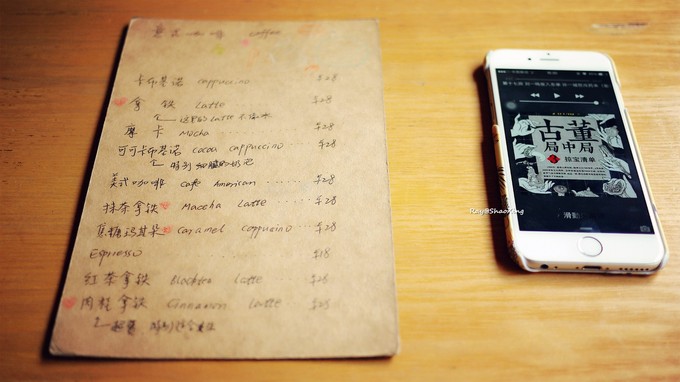 意式咖啡 coffee
卡布基诺 cappuccino $28
拿铁 Latte $28
摩卡 Mocha $28
可可卡布基诺 cocoa cappuccino $28
美式咖啡 Caffe American $28
抹茶拿铁 Maccha Latte $28
焦糖玛其朵 caramel coppucino $28
Espresso $18
红茶拿铁 Blacktea Latte $28
肉桂拿铁 Cinnamon Latte $28
古董
局中局
掠宝清单
滑动
Ray@Shaofeng